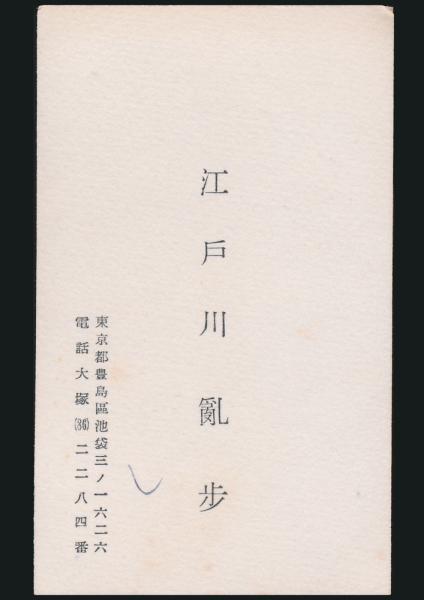 江戶川亂步
東京都豊島區池袋三ノ一六二六
電話大塚(86)二二八四番